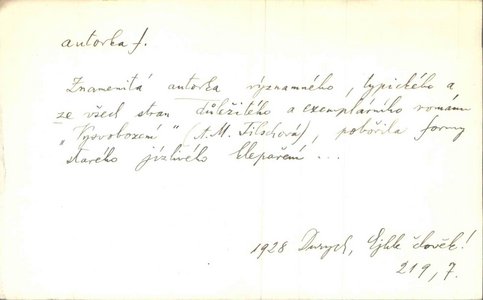 autorka f.
Znamenitá autorka významného, typického a
ze všech stran důležitého a exemplárního románu
"Vysvobození" (A. M. Tilschová), pobořila formy
starého jízlivého klepaření ...
1928 Durych, Ejhle člověk!
219, 7.